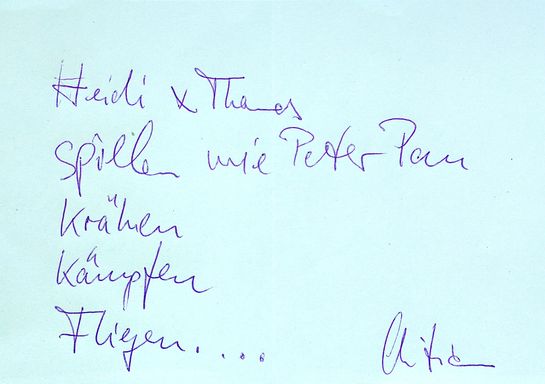 Heidi x Thomas
spillen wie Peter Pan
Krähen
Kämpfen
Fliegen....